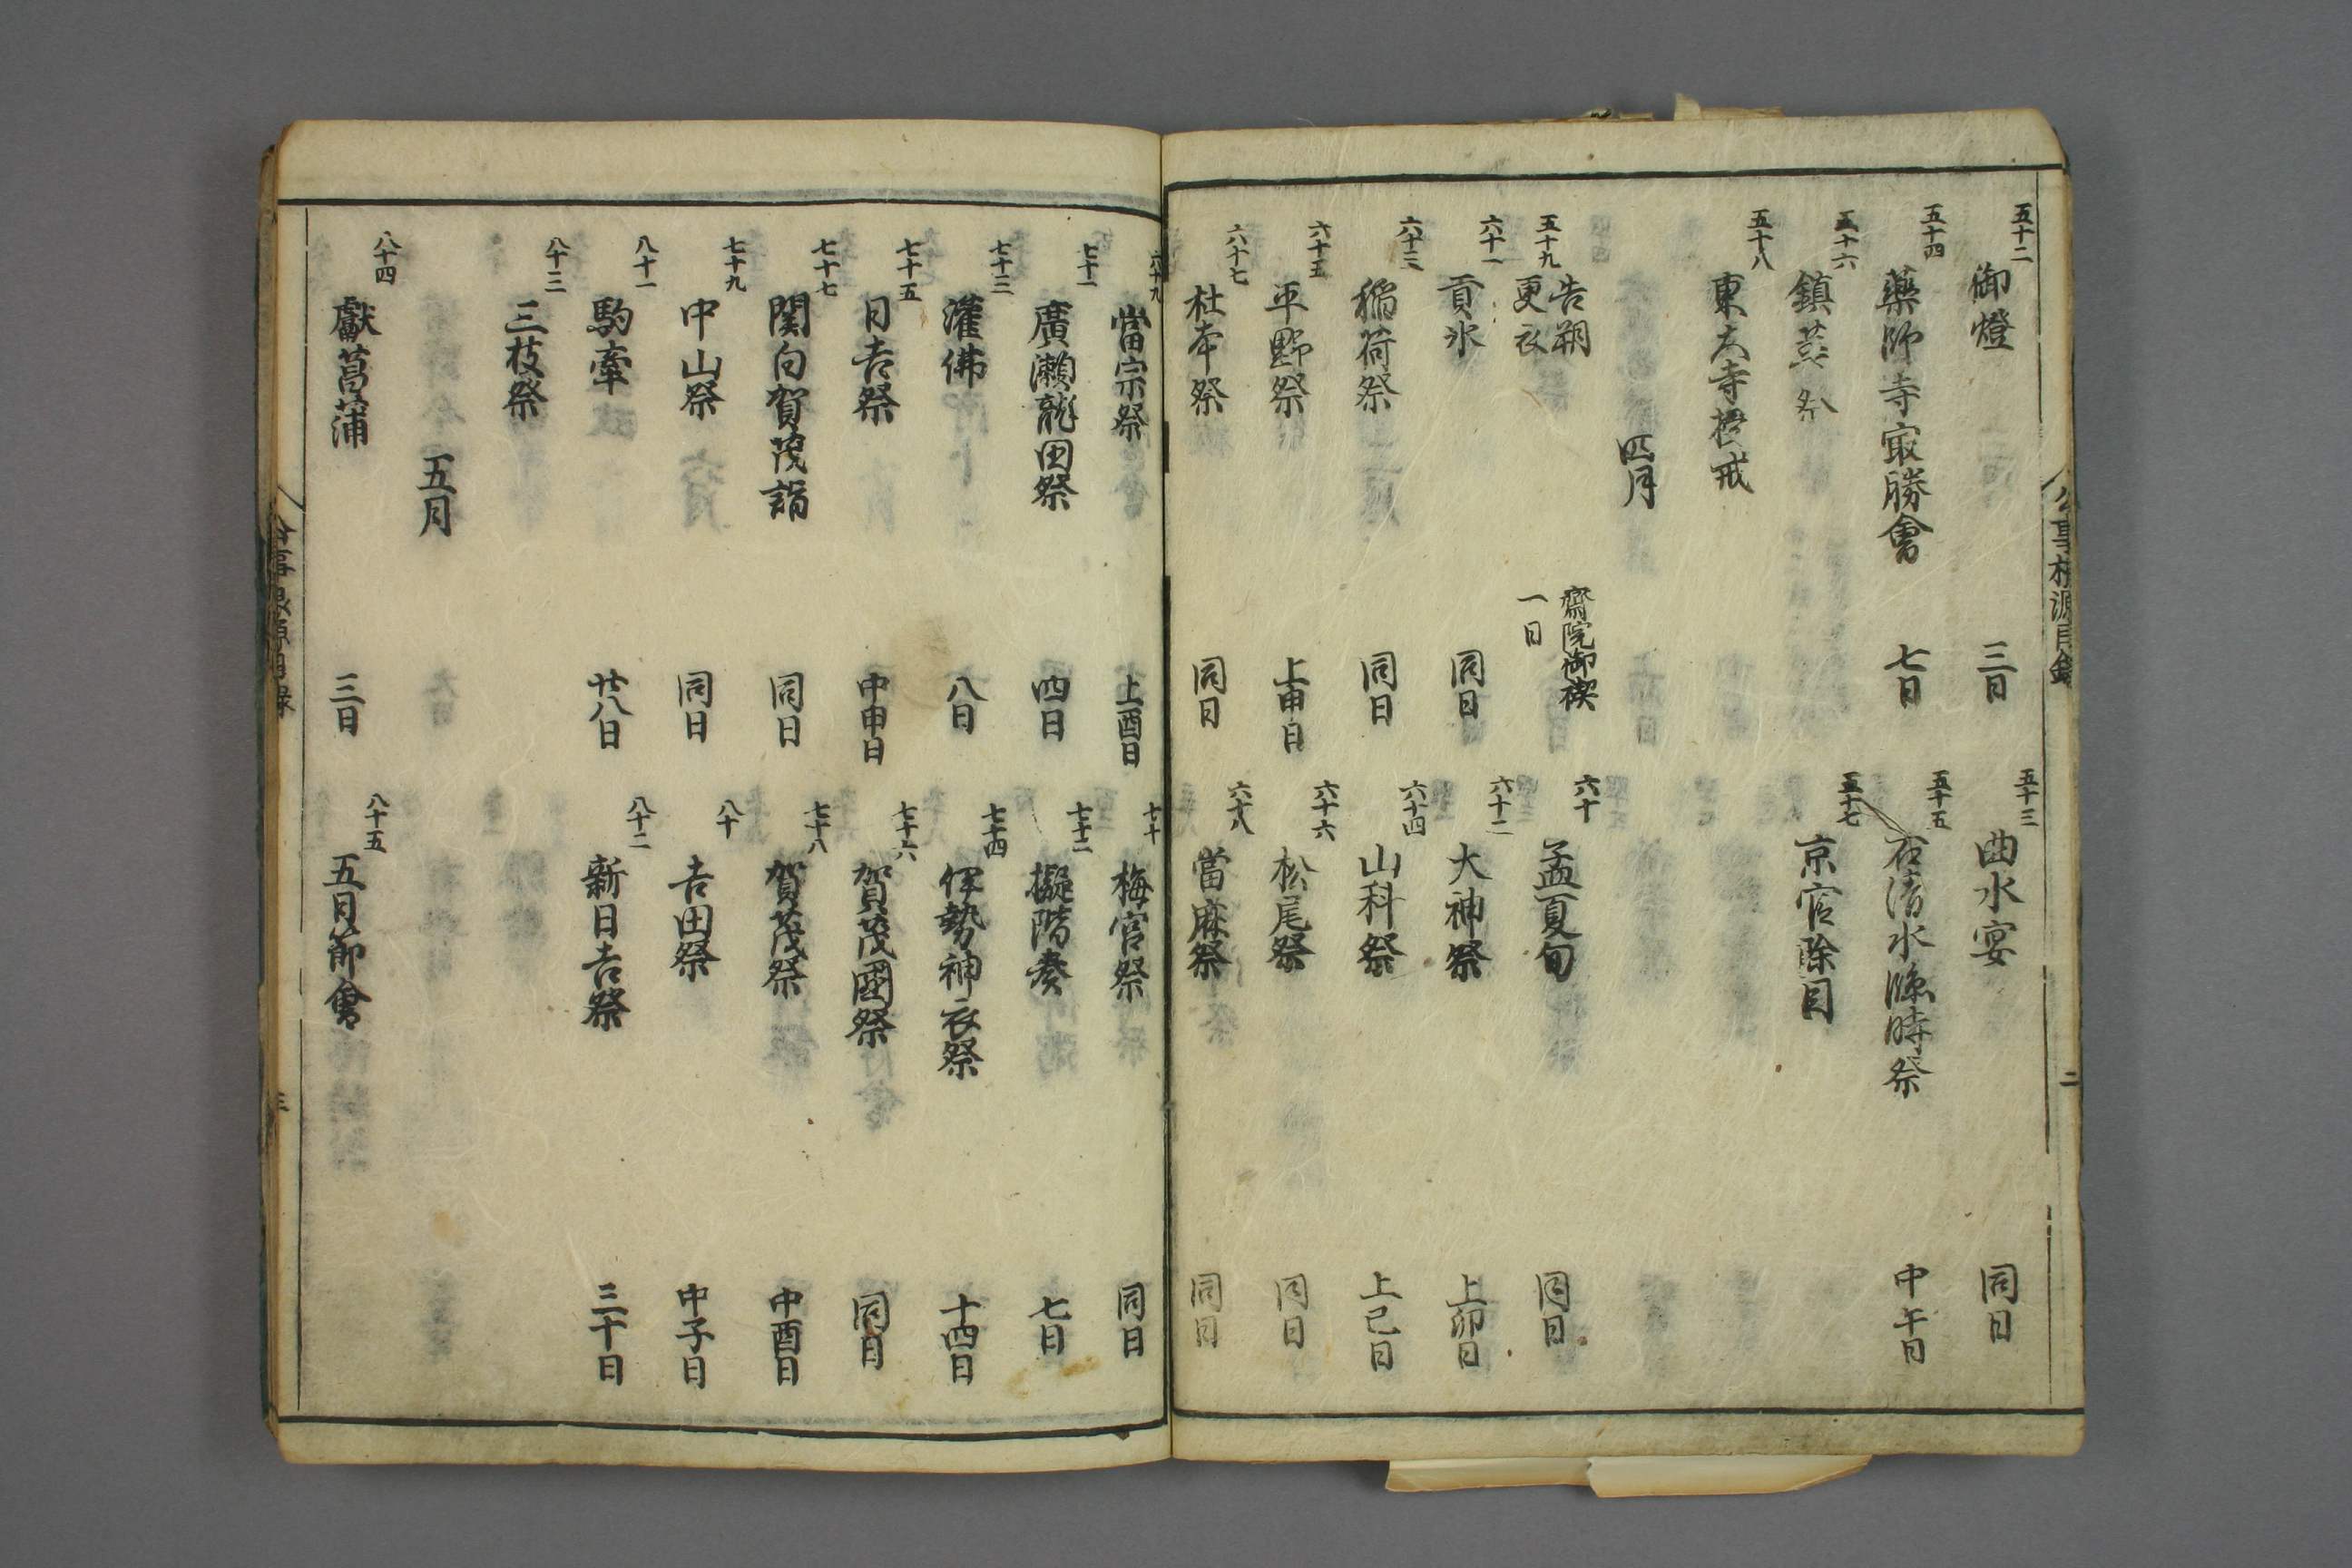 公事根源目録 二
五十二 御燈 三日 五十三 曲水宴 同日
五十四 藥師寺㝡勝會 七日 五十五 石清水臨時祭 中午日
五十六 鎮花祭 五十七 京官除目
五十八 東大寺授戒
四月
五十九 告朔 更衣 齋院御禊 一日 六十 孟夏旬 同日
六十一 貢氷 同日 六十二 大神祭 上卯日
六十三 稲荷祭 同日 六十四 山科祭 上巳日
六十五 平野祭 上申日 六十六 松尾祭 同日
六十七 杜本祭 同日 六十八 當麻祭 同日
六十九 當宗祭 上酉日 七十 梅宮祭 同日
七十一 廣瀬龍田祭 四日 七十二 擬階奏 七日
七十三 灌佛 八日 七十四 伊勢神衣祭 十四日
七十五 日吉祭 中申日 七十六 賀茂國祭 同日
七十七 関白賀茂詣 同日 七十八 賀茂祭 中酉日
七十九 中山祭 同日 八十 吉田祭 中子日
八十一 駒牽 廿八日 八十二 新日吉祭 三十日
八十三 三枝祭
五月
八十四 獻菖蒲 三日 八十五 五日節會
公事根源目録 三